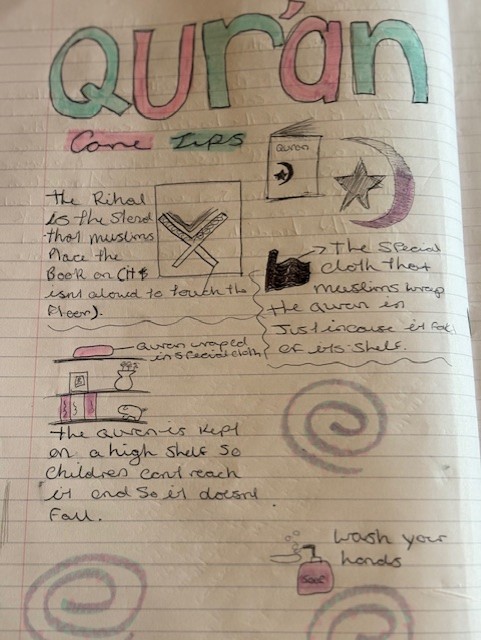 Qur'an
Care Tips
Quran
the Rihal
is the stend
that muslims
Place the
Book on (it's
isnt alowed to touch the
floor).
the special
cloth that
muslims wrap
the quran in
Just incase it falls
of its shelf.
Quran wraped
in special cloth
the quran is kept
on a high shelf so
children cant reach
it and so it doesnt
fall.
wash your
hands
soap